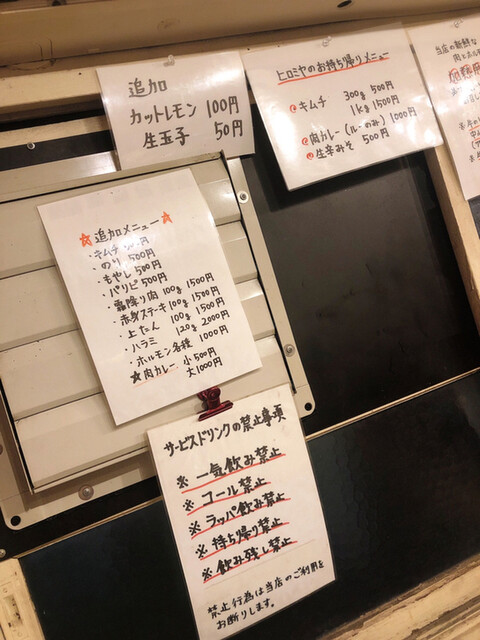 追加
カットレモン 100円
生玉子 50円
ヒロミヤのお持ち帰りメニュー
キムチ 300g 500円
1kg 1500円
肉カレー(ルーのみ) 1000円
生辛みそ 500円
当店の新鮮な
☆追加メニュー☆
・キムチ 円
・のり 500円
・もやし 500円
・パリピ 500円
・霜降り肉 100g 1500円
・赤身ステーキ 100g 1500円
・上たん 100g 1500円
・ハラミ 120g 2000円
・ホルモン各種 1000円
☆肉カレー 小500円
大1000円
サービスドリンクの禁止事項
※一気飲み禁止
※コール禁止
※ラッパ飲み禁止
※持ち帰り禁止
※飲み残し禁止
禁止行為は当店のご利用を
お断りします。